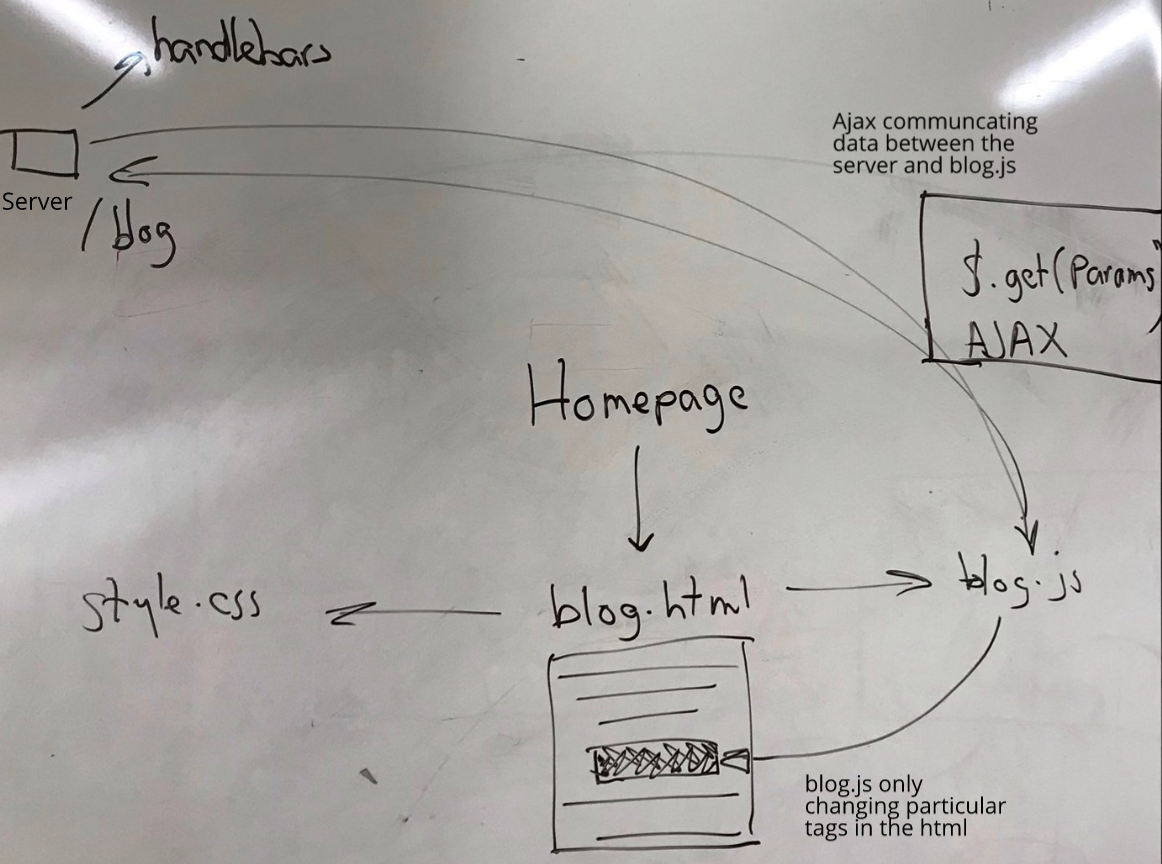 handlebars
Server
/blog
Ajax communcating
data between the
server and blog.js
$.get(Params)
AJAX
Homepage
style.css
blog.html
blog.js
blog.js only
changing particular
tags in the html